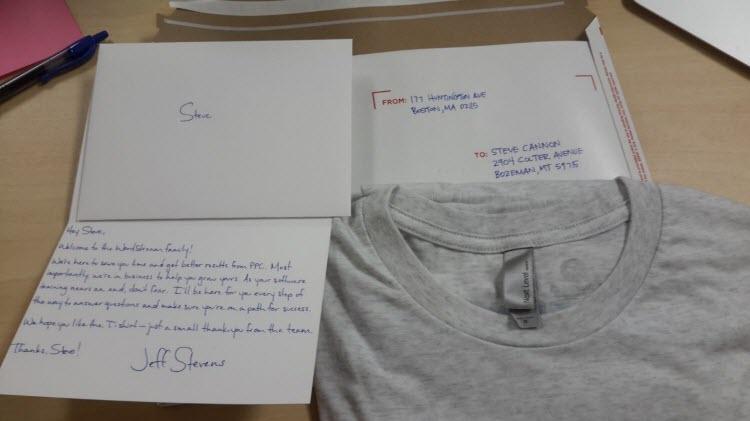 Steve
FROM: 177 HUNTINGTON AVE
BOSTON, MA 02115
TO: STEVE CANNON
2904 COLTER AVENUE
BOZEMAN, MT 59715
Hey Steve,
Welcome to the WordStream family!
We're here to save you time and get better results from PPC. Most
importantly, we're in business to help you grow yours. As your software
training nears an end, don't fear. I'll be here for you every step of
the way to answer questions and make sure you're on a path for success.
We hope you like the T-shirt – just a small thank you from the team.
Thanks, Steve!
Jeff Stevens
Next Level